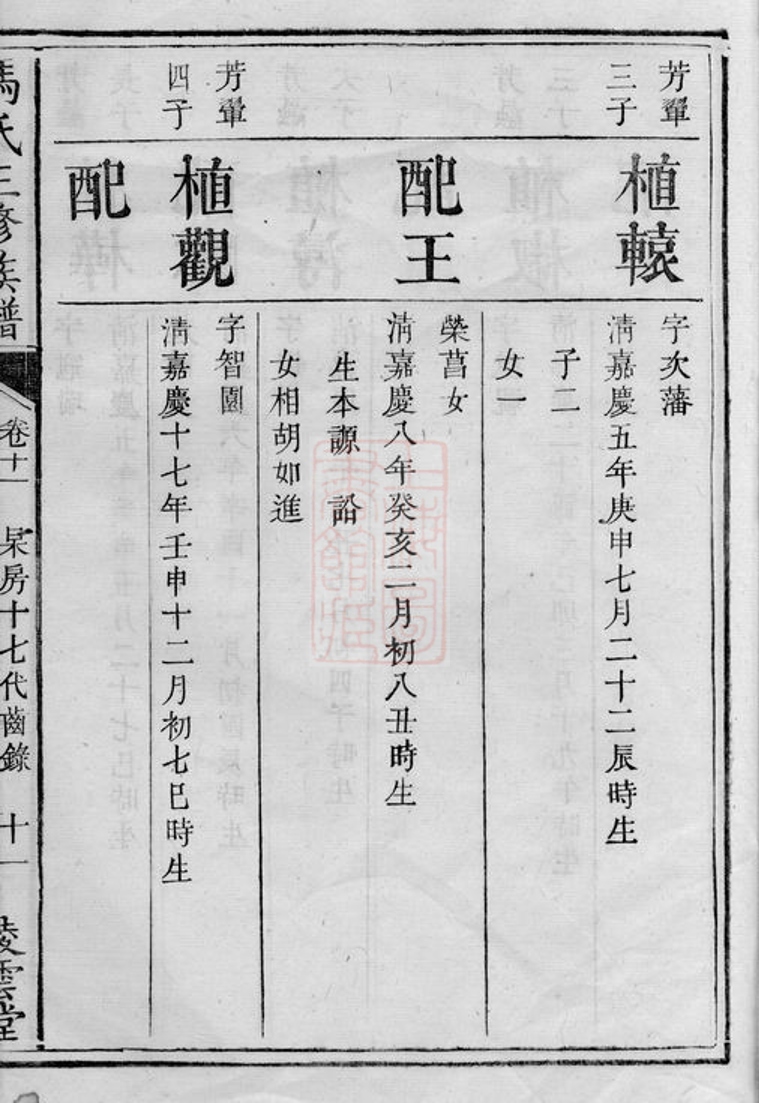 芳翬
三子
植轅
字次藩
清嘉慶五年庚申七月二十二辰時生
子二
女一
配王
榮菖女
清嘉慶八年癸亥二月初八丑時生
生本源 詒
女相胡如進
芳翬
四子
植觀
字智園
清嘉慶十七年壬申十二月初七巳時生
配
馮氏三修族譜
卷十一
杲房十七代齒錄
十一
凌雲堂